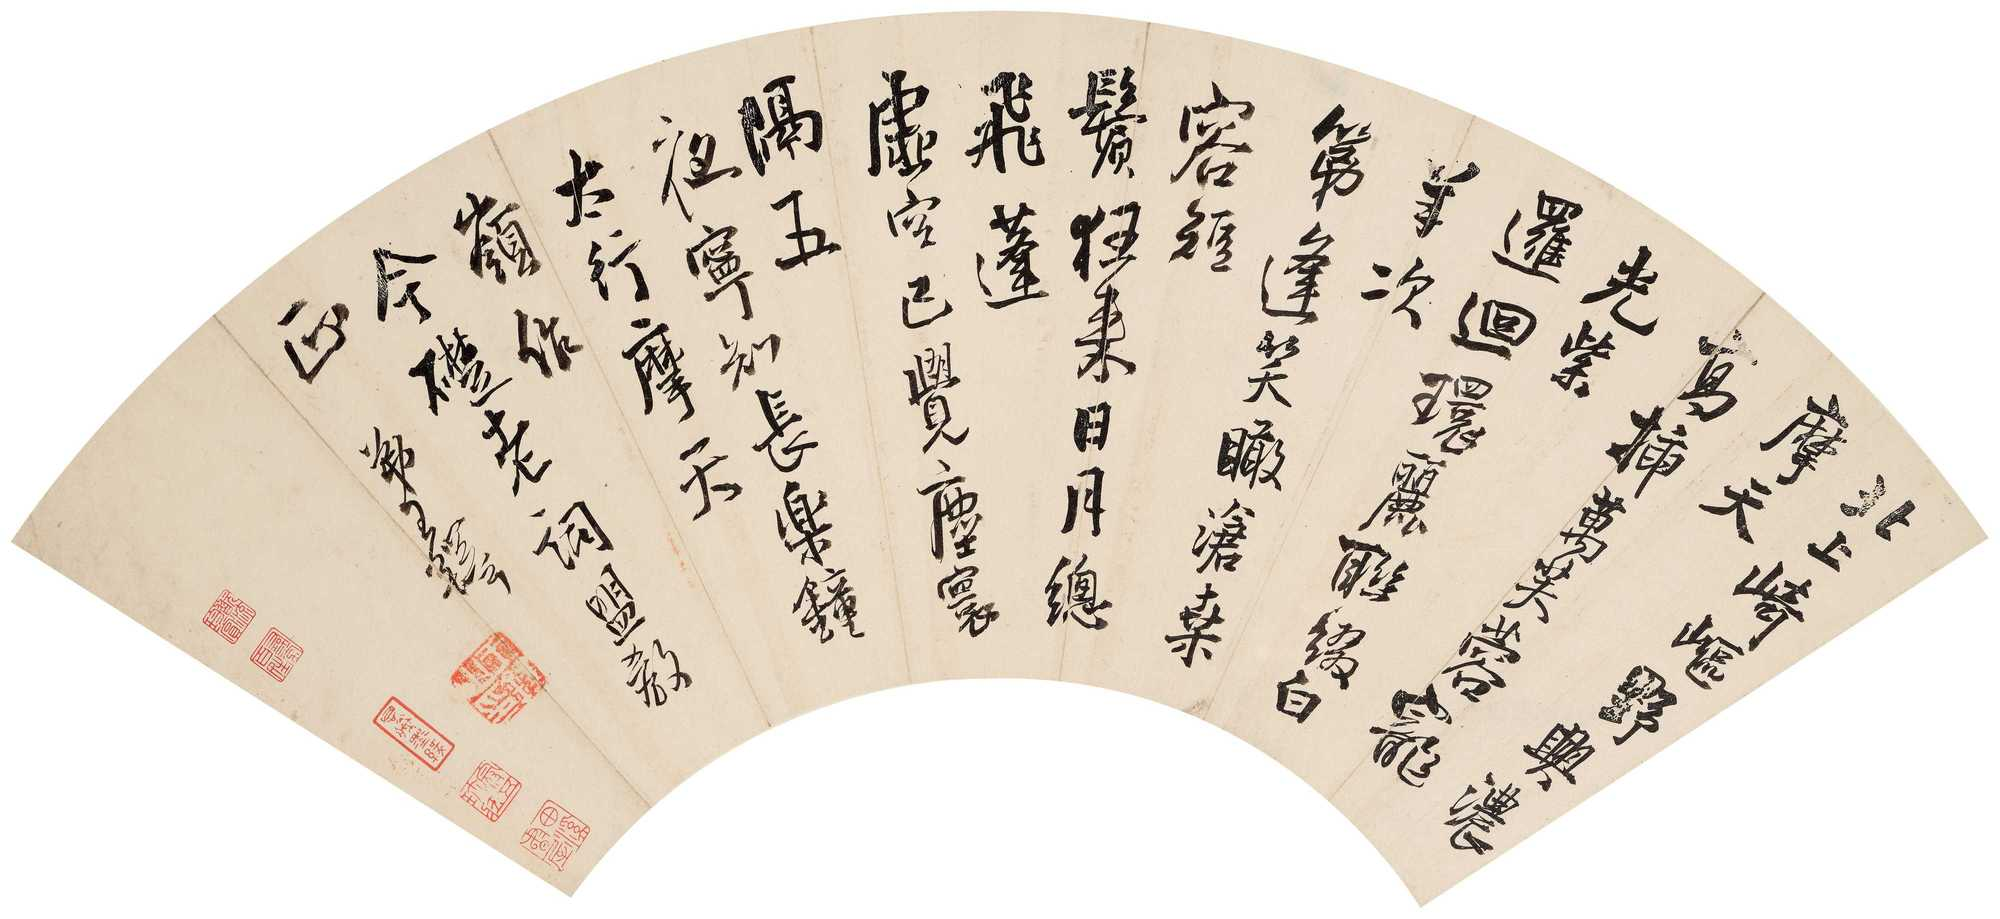 北上崎嶇野興濃
摩天
高插萬芙蓉寵
光紫
邏迴環麗聯綴白
羊次
第逢笑瞰滄桑
容短
鬢狂來日月總
飛蓬
虛空已覺塵寰
隔五
夜寧知長樂鐘
太行摩天
嶺作
今礎老詞盟教
正
王鐸